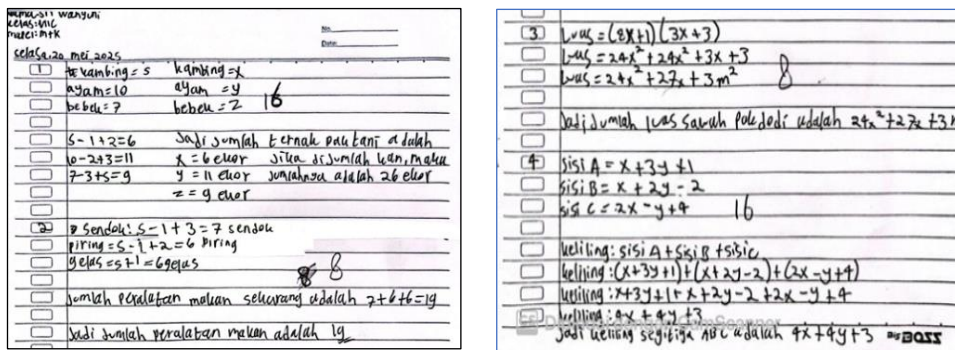 Nama: Sri wahyuni
kelas: VIIC
mapel: MTK
No.
Date:
selasa, 20 mei 2025
1 kambing = 5 kambing = x
ayam = 10 ayam = y
bebek = 7 bebek = z 16
5 - 1 + 2 = 6 Jadi jumlah ternak pak tani adalah
10 - 2 + 3 = 11 x = 6 ekor jika dijumlah kan, maka
7 - 3 + 5 = 9 y = 11 ekor jumlahnya adalah 26 ekor
z = 9 ekor
2 sendok: 5 - 1 + 3 = 7 sendok
piring = 5 - 1 + 2 = 6 piring
gelas = 5 + 1 = 6 gelas
8
Jumlah peralatan makan sekarang adalah 7 + 6 + 6 = 19
Jadi Jumlah peralatan makan adalah 19
3 Luas = (8x+1) (3x+3)
Luas = 24x² + 24x² + 3x + 3
Luas = 24x² + 27x + 3 m² 8
Jadi Jumlah luas sawah pak dedi adalah 24x² + 27x + 3
4 sisi A = x + 3y + 1
sisi B = x + 2y - 2
sisi C = 2x - y + 4 16
keliling: sisi A + sisi B + sisi C
keliling: (x + 3y + 1) + (x + 2y - 2) + (2x - y + 4)
keliling: x + 3y + 1 + x + 2y - 2 + 2x - y + 4
keliling: 4x + 4y + 3
Jadi keliling segitiga ABC adalah 4x + 4y + 3
BOSS